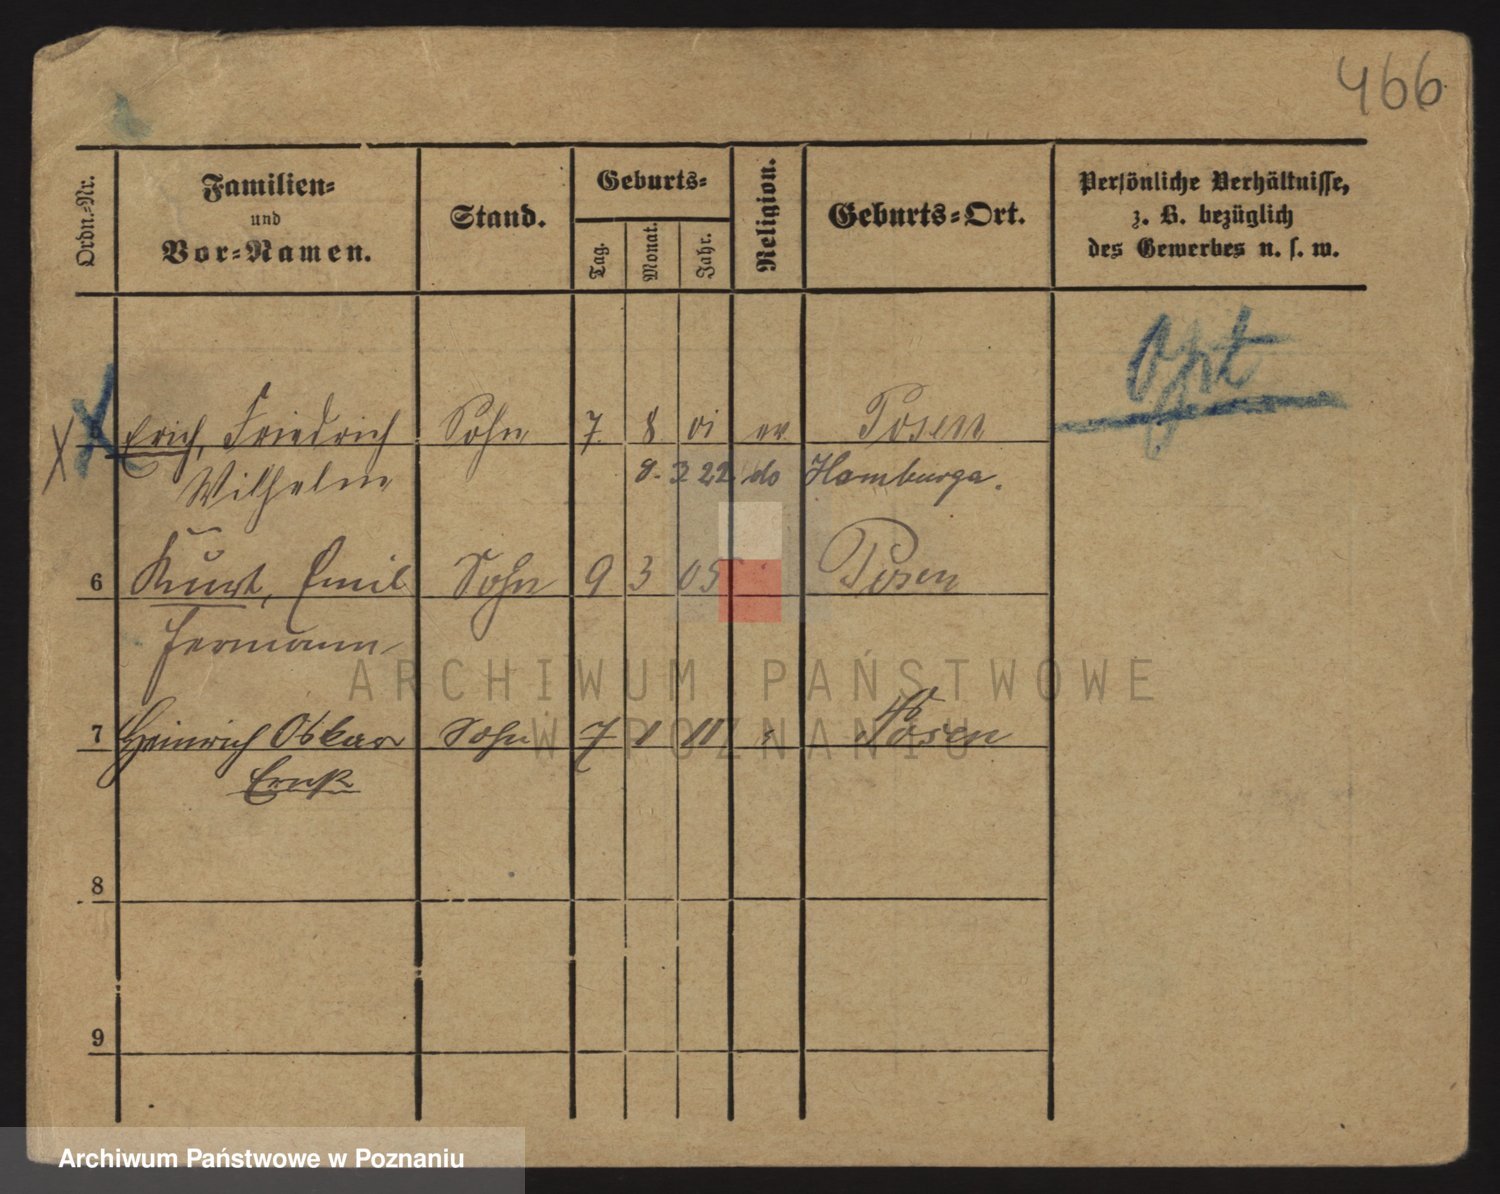 466
Ordn.-Nr.
Familien-
und
Vor-Namen.
Stand.
Geburts-
Tag.
Monat.
Jahr.
Religion.
Geburts-Ort.
Persönliche Verhältnisse,
z. B. bezüglich
des Gewerbes u. s. w.
Opt
Erich, Friedrich Sohn 7. 8 01 ev. Posen
Wilhelm 22 do Hamburga.
6 Kurt, Emil Sohn 9 3 05 Posen
Hermann
7 Heinrich Oskar Sohn 7 1 11 Posen
Ernst
8
9
ARCHIWUM PAŃSTWOWE
W POZNANIU
Archiwum Państwowe w Poznaniu